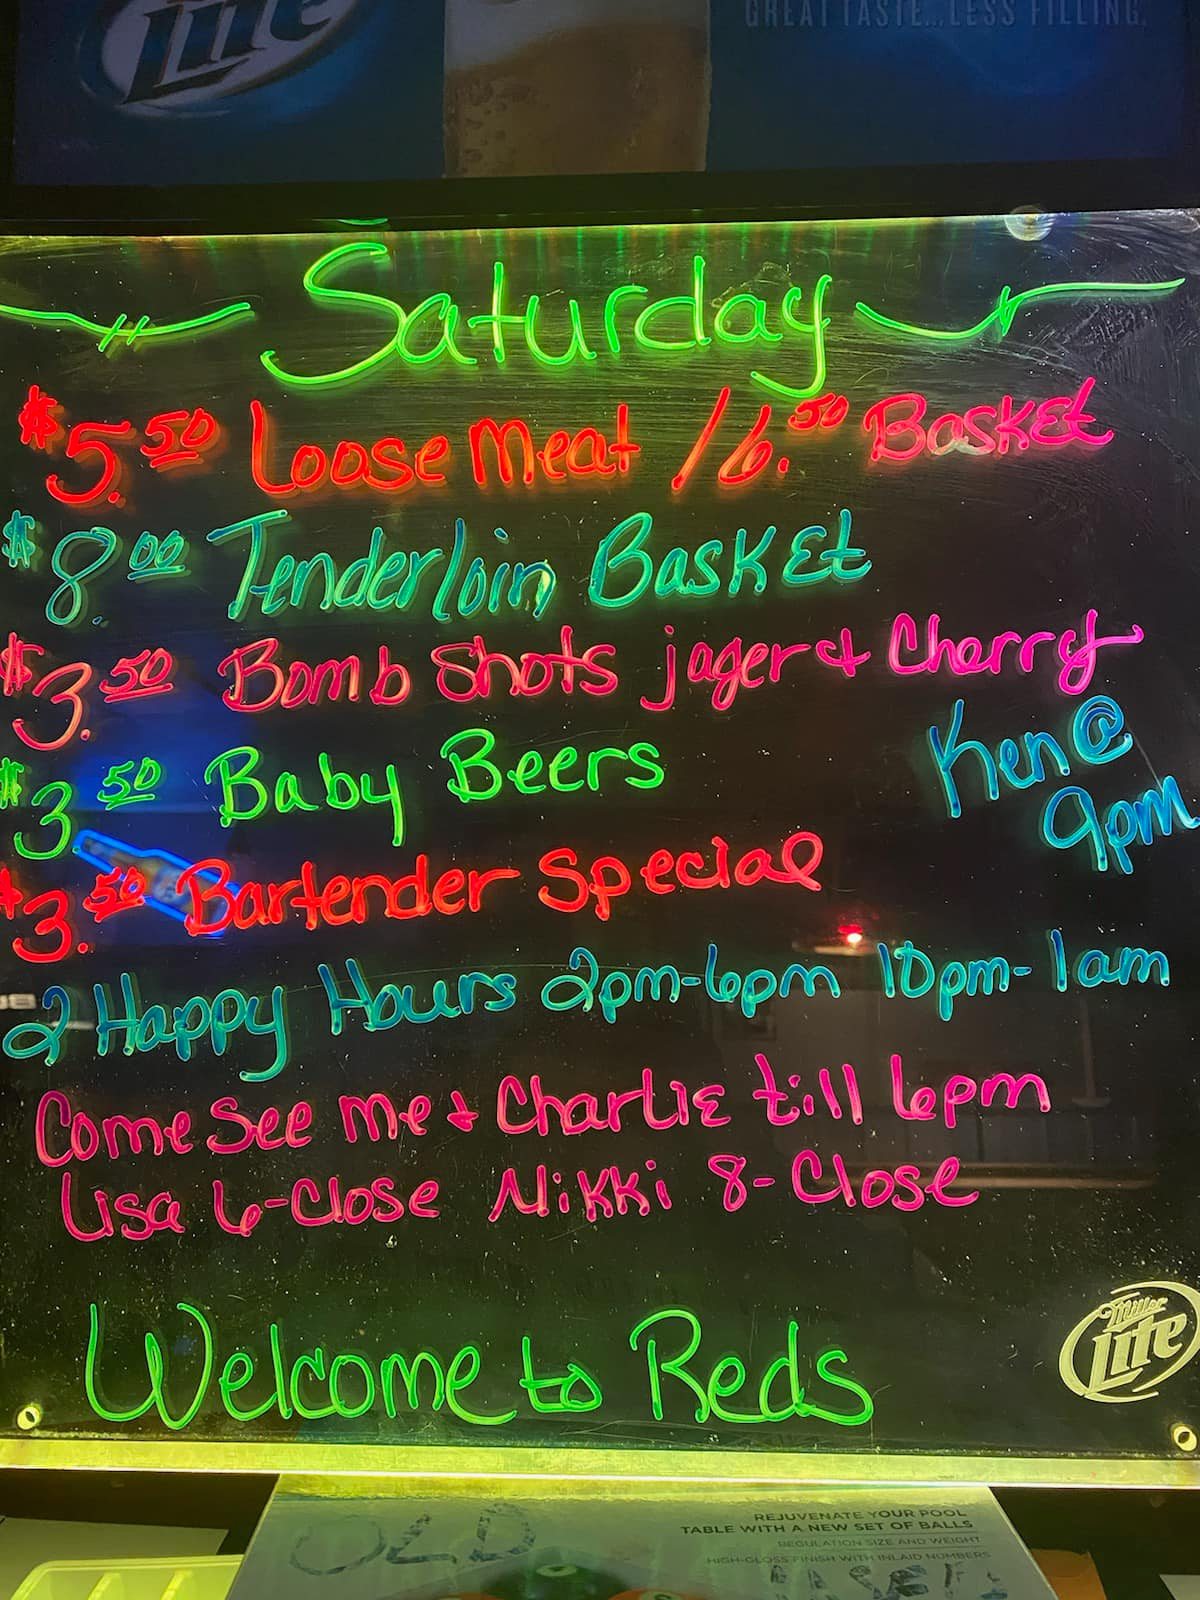 Lite
GREAT TASTE...LESS FILLING.
Saturday
$5.50 Loose Meat /6.50 Basket
$8.00 Tenderloin Basket
$3.50 Bomb Shots jager & Cherry
$3.50 Baby Beers
Ken @
9pm
$3.50 Bartender Special
2 Happy Hours 2pm-6pm 10pm-1am
Come See me & Charlie till 6pm
Lisa 6-Close Nikki 8-Close
Welcome to Reds
Miller
Lite
REJUVENATE YOUR POOL
TABLE WITH A NEW SET OF BALLS
REGULATION SIZE AND WEIGHT
HIGH-GLOSS FINISH WITH INLAID NUMBERS
OLD